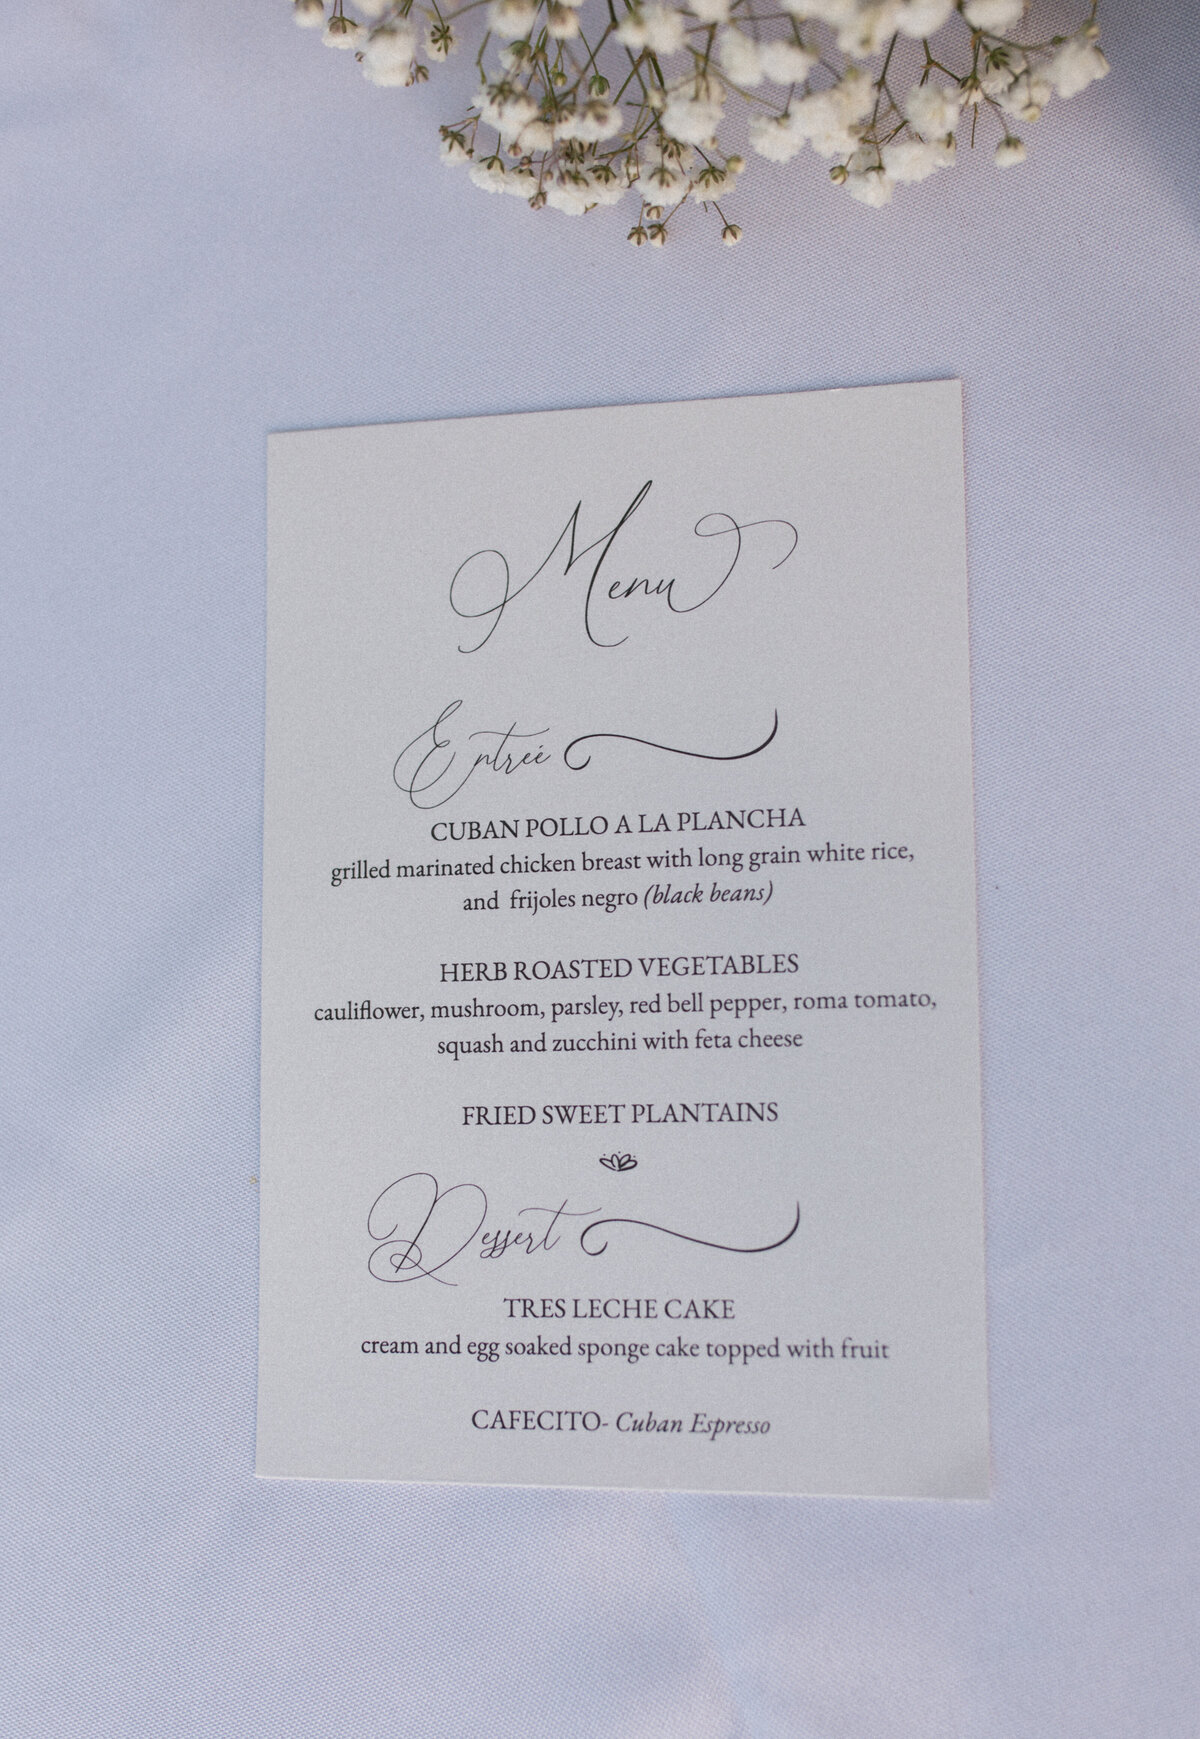 Menu
Entrée
CUBAN POLLO A LA PLANCHA
grilled marinated chicken breast with long grain white rice,
and frijoles negro (black beans)
HERB ROASTED VEGETABLES
cauliflower, mushroom, parsley, red bell pepper, roma tomato,
squash and zucchini with feta cheese
FRIED SWEET PLANTAINS
Dessert
TRES LECHE CAKE
cream and egg soaked sponge cake topped with fruit
CAFECITO- Cuban Espresso